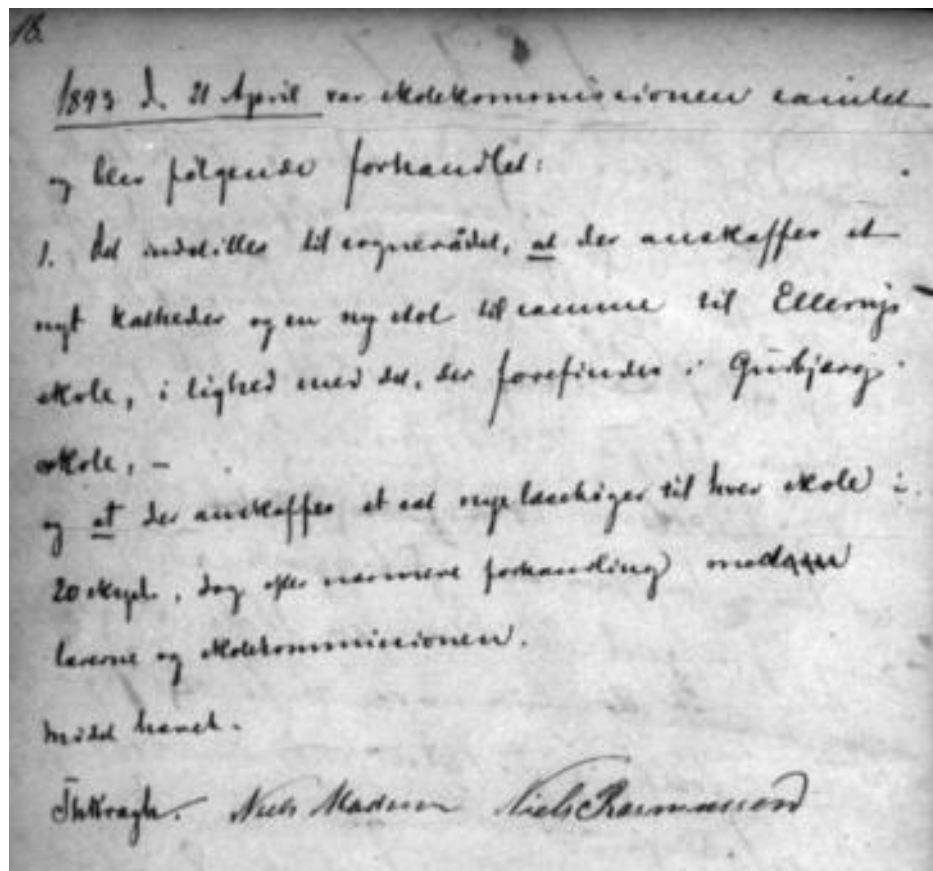 18.
1893 d. 21 April var skolekommissionen samlet
og blev følgende forhandlet:
1. Det indstilles til sognerådet, at der anskaffes et
nyt katheder og en ny stol til samme til Ellerup
skole, i lighed med det, der forefindes i Gudbjerg
skole, –
og at der anskaffes et sæt nye læsebøger til hver skole i
20 , dog efter nærmere forhandling med
lærerne og skolekommissionen.
Mødet hævet.
Niels Madsen Niels Rasmussen